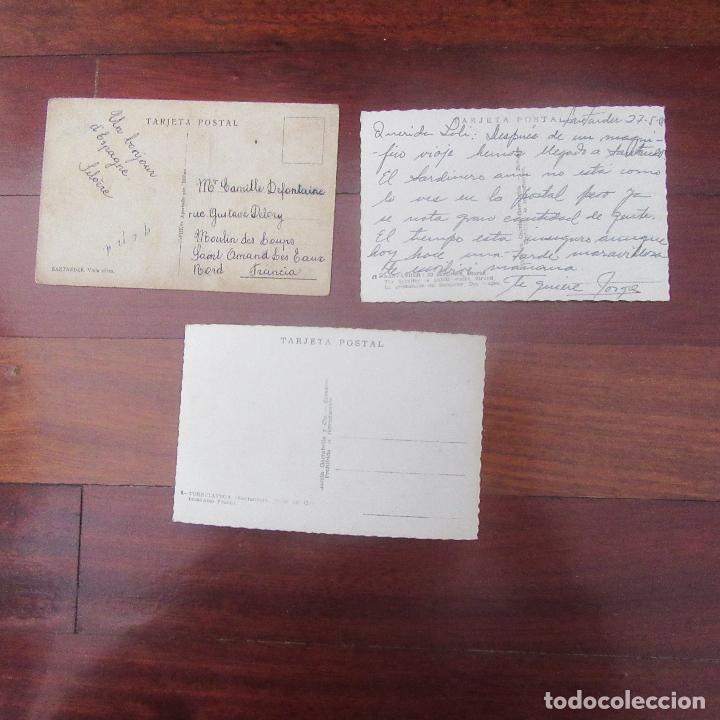 TARJETA POSTAL
Un bonjour
d'Espagne
Mr Camille Defontaine
rue Gustave Déory
Moulin des Loups
Saint Amand Les Eaux
Nord Francia
SANTANDER. Vista aérea.
TARJETA POSTAL Santander 27-5-
Querida Loli: Después de un magni-
fico viaje hemos llegado a Santander
El Sardinero aún no está como
lo ves en la postal pero ya
se nota gran cantidad de gente.
El tiempo está inseguro aunque
hoy hace una tarde maravillosa
te escribiré mañana
Te quiere Jorge
TARJETA POSTAL
Prohibida la reproducción
TORRELAVEGA (Santander)
todocoleccion.net